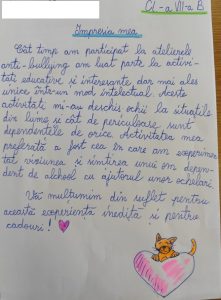 Cl. a VII-a B
Impresia mea
Cât timp am participat la atelierele
anti-bullying am luat parte la activi-
tăți educative și interesante, dar mai ales
unice într-un mod intelectual. Aceste
activități mi-au deschis ochii la situațiile
din lume și cât de periculoase sunt
dependențele de orice. Activitatea mea
preferată a fost cea în care am experimen-
tat viziunea și simțirea unui om depen-
dent de alcool cu ajutorul unor ochelari.
Vă mulțumim din suflet pentru
această experiență inedită și pentru
cadouri!